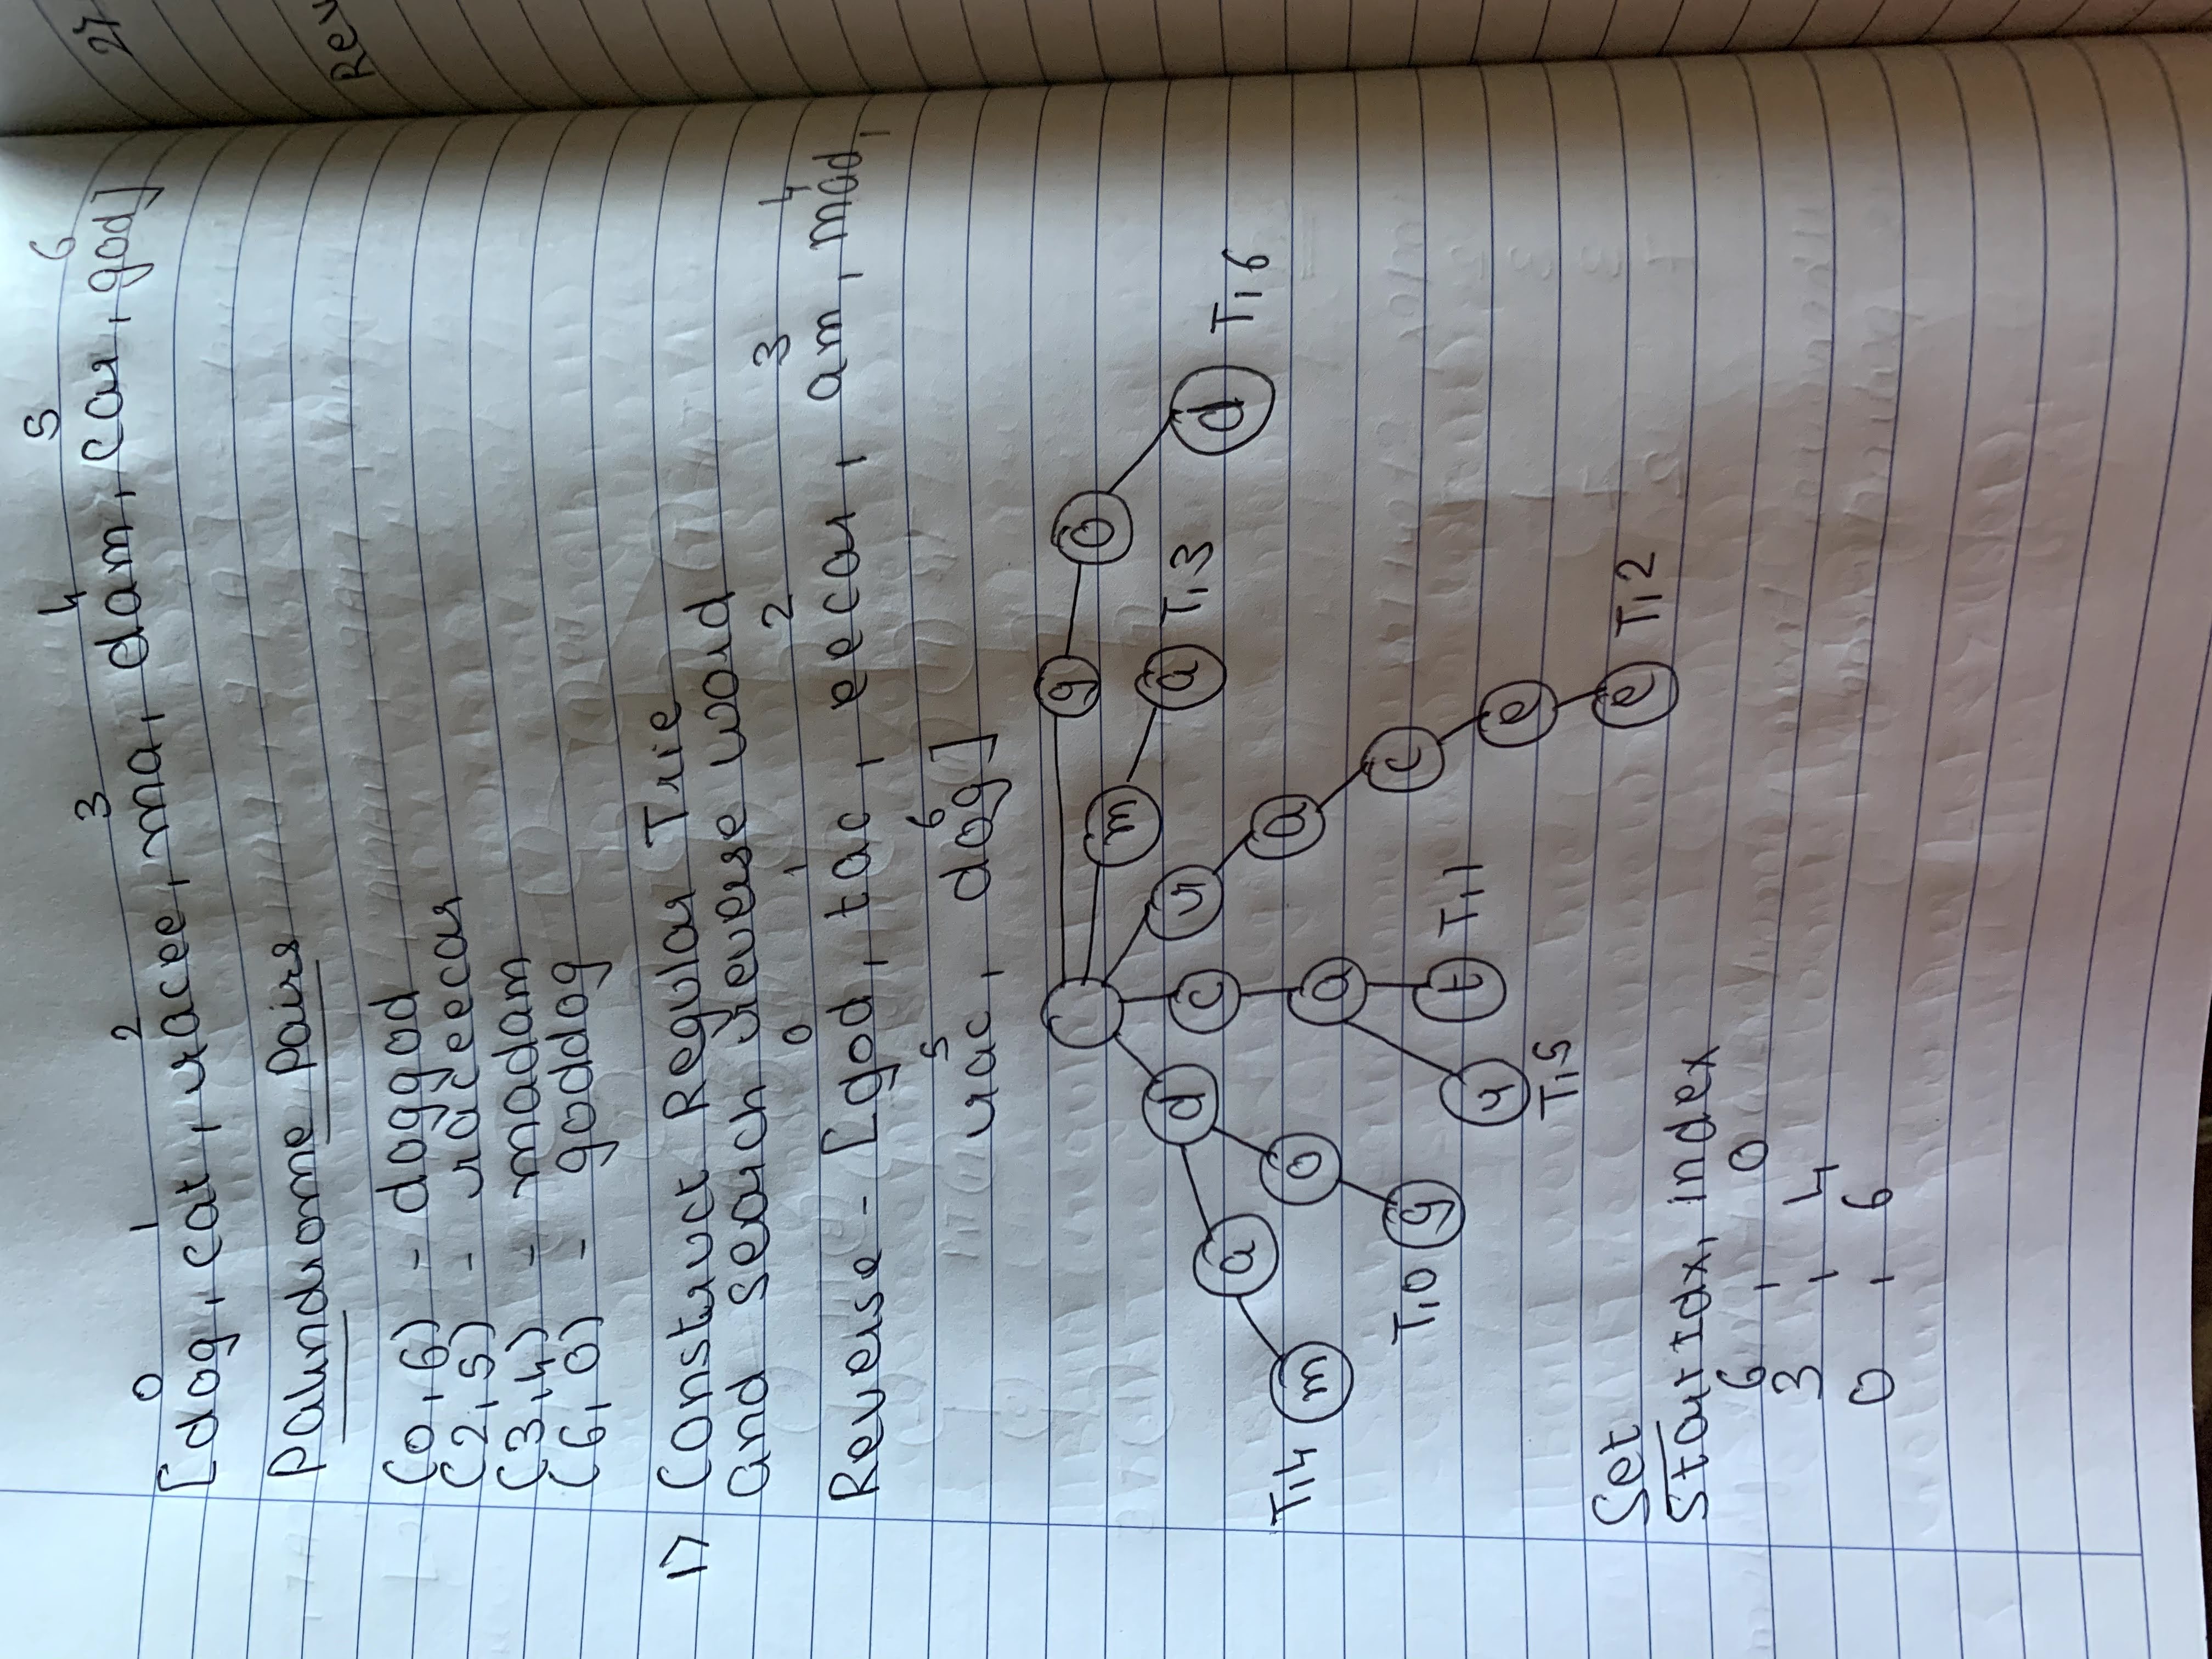 0 1 2 3 4 5 6
[dog, cat, racee, ma, dam, car, god]
Palindrome Pairs
(0,6) - doggod
(2,5) - raceecar
(3,4) - madam
(6,0) - goddog
1) Construct Regular Trie
and search reverse word
0 1 2 3 4
Reverse - [god, tac, eecar, am, mad,
5 6
rac, dog]
g o
m
d c r a T,3 d T,6
a
T,4 m o a a
T,0 g c
r t T,1
e
T,5
e T,2
Set
StartIdx, index
6 , 0
3 , 4
0 , 6
27
Rev